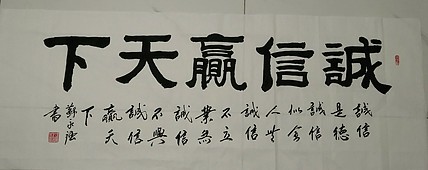 誠信贏天下
誠信
是德
誠信
似金
人無
誠信
不立
業無
誠信
不興
誠信
贏天
下
蘇永
書